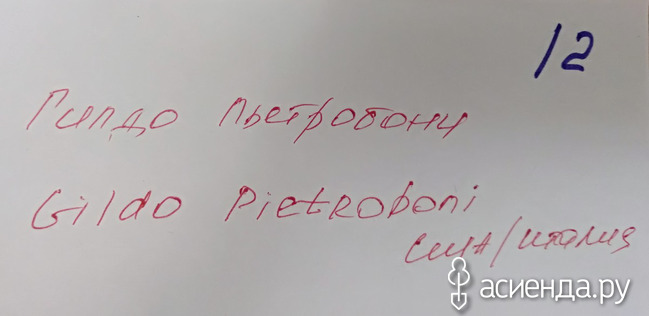 12
Гилдо Пьетробони
Gildo Pietroboni
сша/италия
асиенда.ру